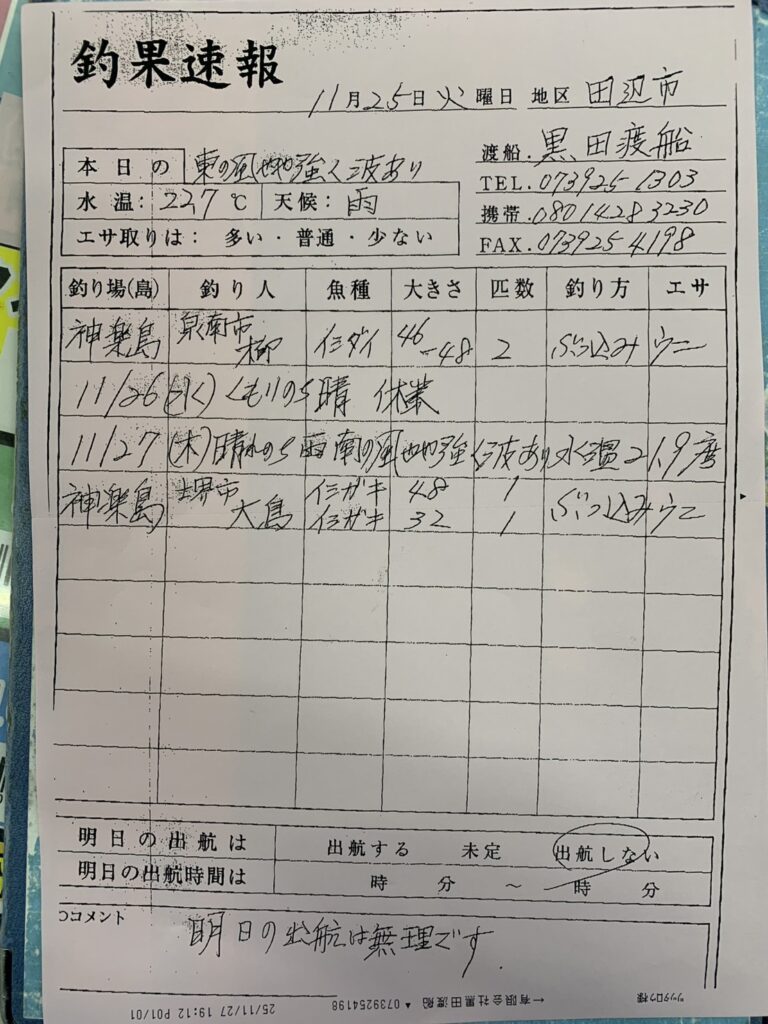 釣果速報
11月25日火曜日 地区 田辺市
渡船.黒田渡船
本日の 東の風やや強く波あり
TEL.073925 1303
水温: 22.7℃ 天候: 雨
携帯.080 1428 3230
エサ取りは: 多い・普通・少ない
FAX.073925 4198
釣り場(島) 釣り人 魚種 大きさ 匹数 釣り方 エサ
神楽島 泉南市 柳 イシダイ 46-48 2 ぶっ込み ウニ
11/26(水) くもりのち晴 休業
11/27(木) 晴れのち雨 南の風やや強く波あり 水温21.9度
神楽島 堺市 大鳥 イシガキ 48 1 ぶっ込み ウニ
イシガキ 32 1
明日の出航は 出航する 未定 出航しない
明日の出航時間は 時 分 ～ 時 分
○コメント
明日の出航は無理です
25/11/27 19:12 P01/01 ▲ 0739254198 ←有限会社黒田渡船